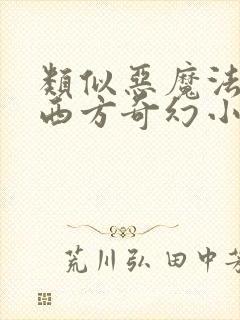 類似惡魔法
西方奇幻小
荒川弘 田中芳